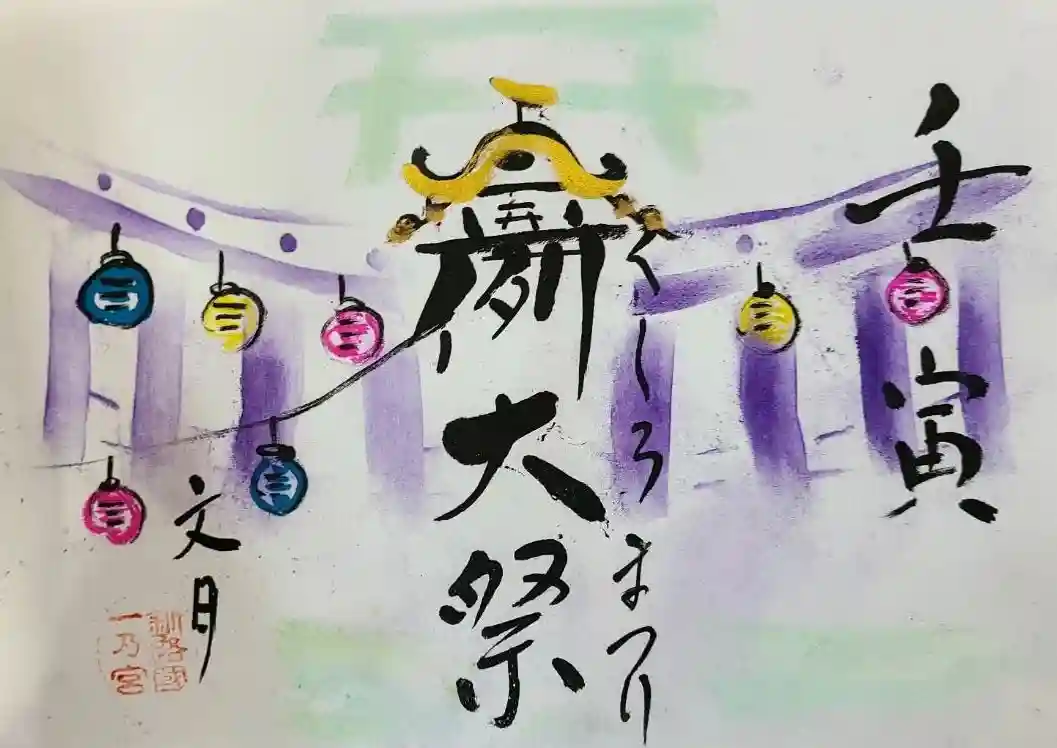 壬寅
くしろまつり
例大祭
文月
釧路國
一乃宮